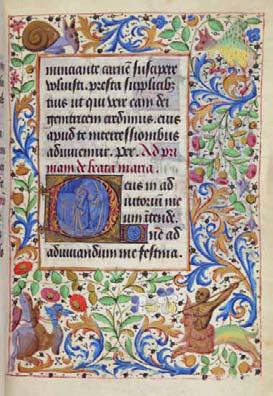 nunciante carnem suscipere
voluisti. presta supplicib;
tuis ut qui vere eam dei
genitricem credimus. eius
apud te intercessionibus
adiuvemur. Per. Ad pri
mam de beata maria.
Deus in ad
iutorium me
um intende.
Dne ad
adiuvandum me festina.